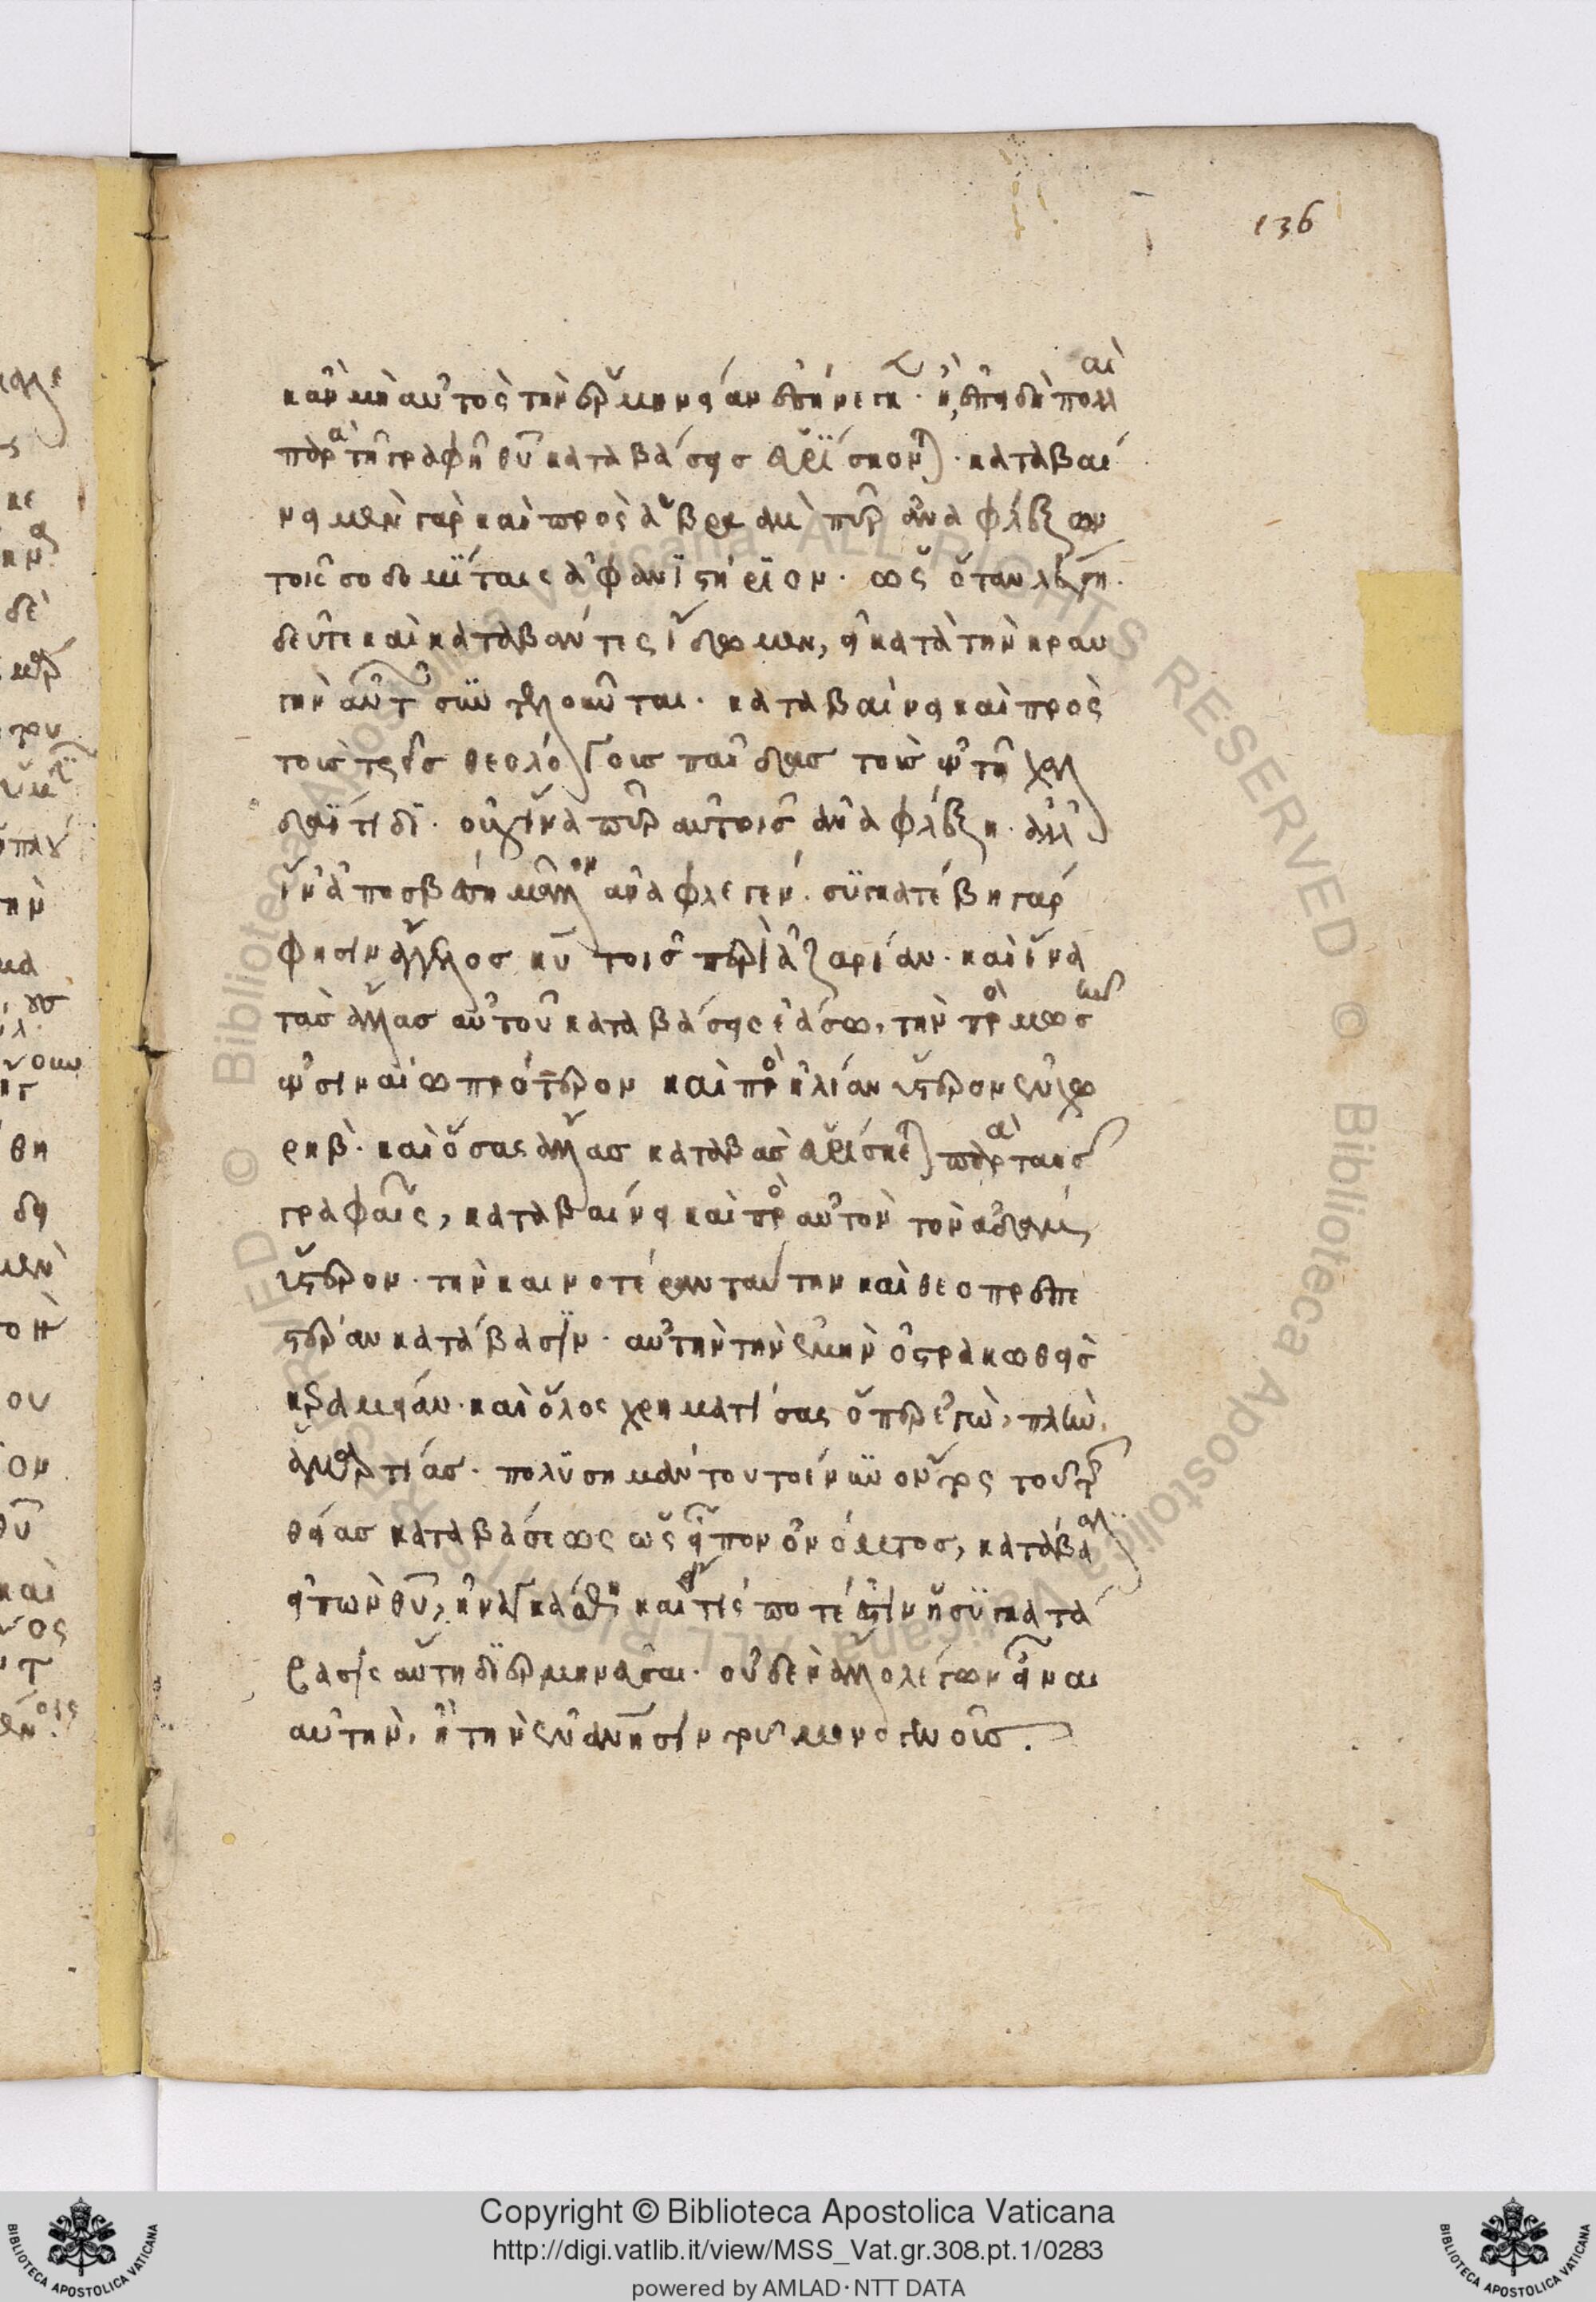 136
κἂν μὴ αὐτὸς τὴν ἑρμηνείαν ἐπήνεγκ. ἢ, ἐπειδὴ πολλαὶ
παρὰ τῇ γραφῇ θυ καταβάσεις εὑρίσκοντ. καταβαί
νει μὲν γὰρ καὶ πρὸς ἀβραὰμ πῦρ ἀναφλέξων
τοῖς σοδομίταις ἀφανιστήριον. ὡς ὅταν λέγῃ.
δεῦτε καὶ καταβάντες ἴδωμεν, εἰ κατὰ τὴν κραυ
γὴν αὐτῶν συντελοῦνται. καταβαίνει καὶ πρὸς
τοὺς τρεῖς θεολόγους παῖδας τοὺς ἐν τῇ χαλ
δαΐτιδι. οὐχ ἵνα πῦρ αὐτοῖς ἀναφλέξῃ. ἀλλ
ἵν ἀποσβέσῃ μᾶλλον ἀναφλεγέν. συγκατέβη γάρ
φησιν ἄγγελος κυ τοῖς περὶ ἀζαρίαν. καὶ ἵνα
τὰς ἄλλας αὐτοῦ καταβάσεις ἐάσω, τὴν πρὸς μωσῆν
ἐν σιναίω πρότερον καὶ πρὸς ἠλίαν ὕστερον ἐν χω
ρηβ. καὶ ὅσας ἄλλας καταβὰς εὑρίσκετ παρὰ ταῖς
γραφαῖς, καταβαίνει καὶ πρὸς αὐτὸν τὸν ἀδὰμ
ὕστερον. τὴν καινοτέραν ταύτην καὶ θεοπρεπε
στέραν κατάβασιν. αὐτὴν τὴν ἐμὴν ὀστρακωθεὶς
κεραμείαν. καὶ ὅλος χρηματίσας ὅπερ ἐγὼ, πλὴν
ἁμαρτίας. πολυσημάντου τοίνυν ὄντος τοῦ τῆς
θείας καταβάσεως ὡς εἶπον ὀνόματος, κατάβαλ
εἰπὼν θυ, ἠναγκάσθη καὶ τίς ποτέ ἐστιν ἡ συγκατά
βασις αὕτη διερμηνεῦσαι. οὐδὲν ἄλλο λέγων εἶναι
αὐτὴν, ἢ τὴν ἐνάνησιν τοῦ μονογενοῦς.
Copyright © Biblioteca Apostolica Vaticana
http://digi.vatlib.it/view/MSS_Vat.gr.308.pt.1/0283
powered by AMLAD·NTT DATA